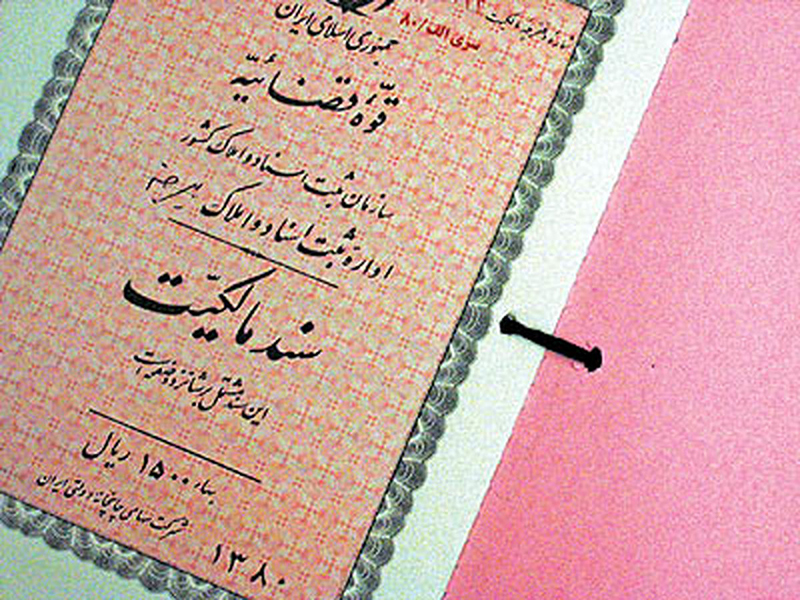 شماره دفترچه مالکیت
سری الف/۸۰
جمهوری اسلامی ایران
قوّهٔ قضائیّه
سازمان ثبت اسناد و املاک کشور
ادارهٔ ثبت اسناد و املاک
سند مالکیّت
این سند مشتمل بر شانزده صفحه است
بهاء ۱۵۰۰ ریال
شرکت سهامی چاپخانه دولتی ایران
۱۳۸۰